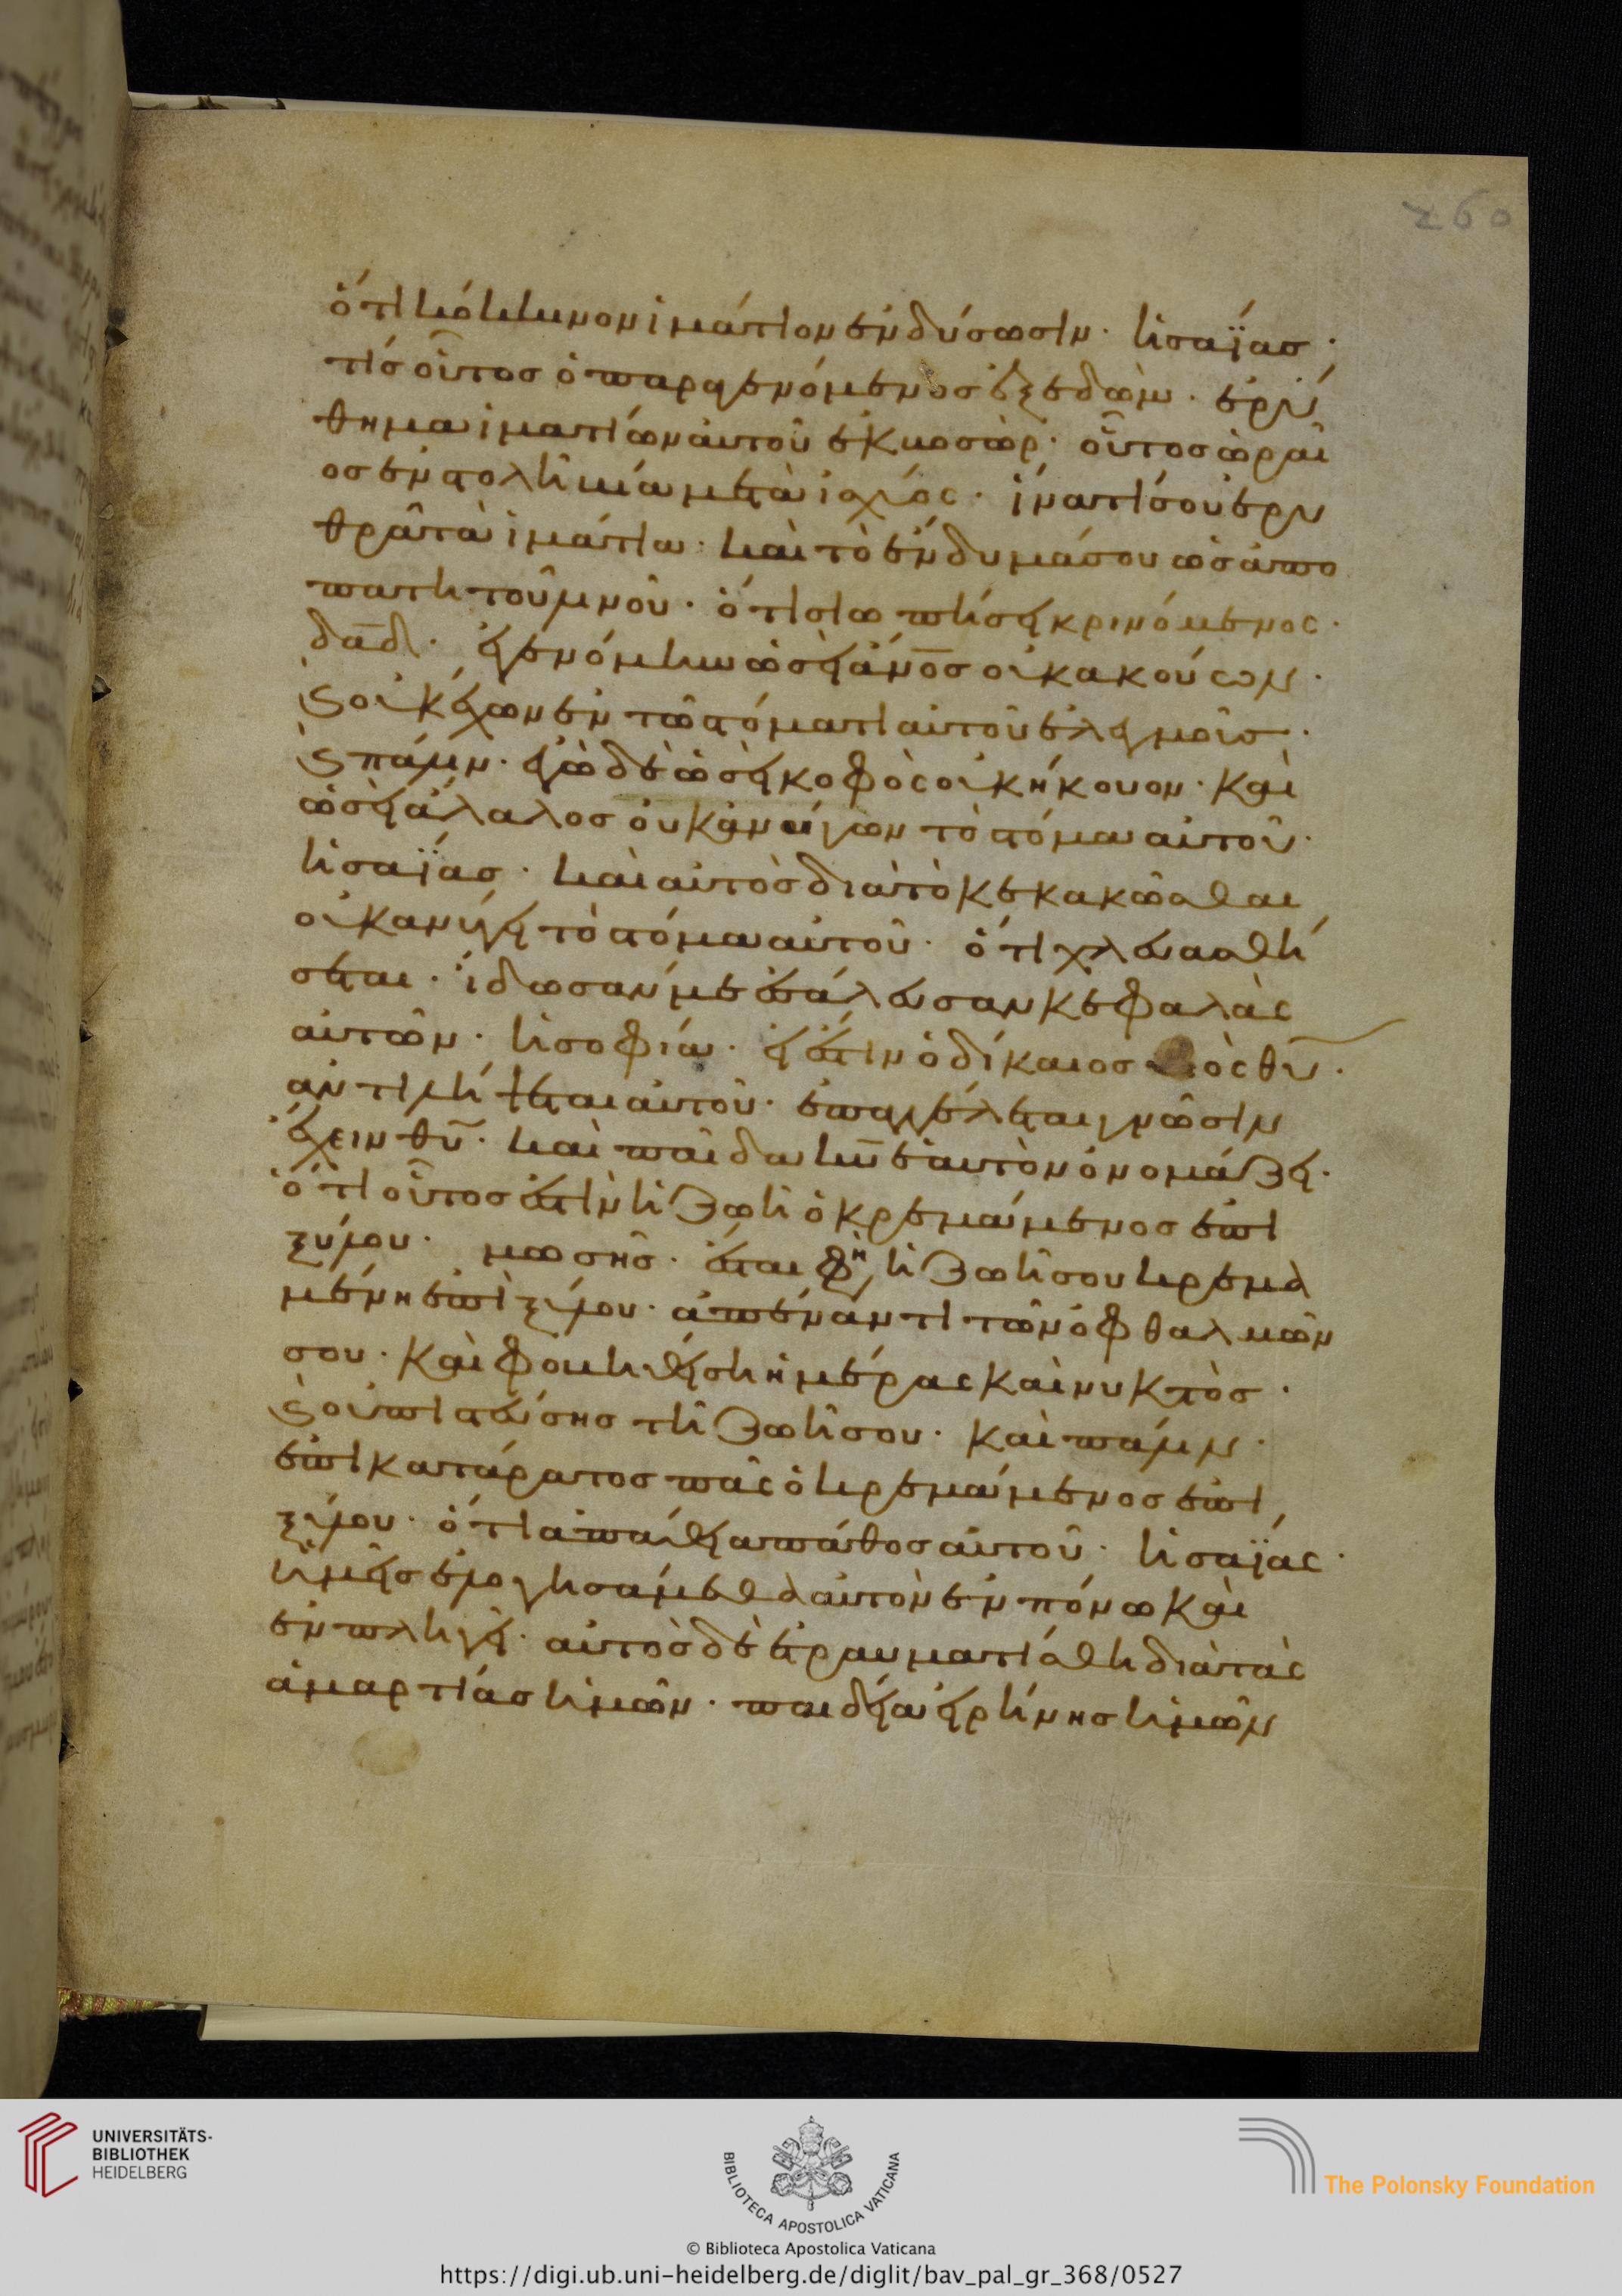 260
ὅτι κόκκινον ἱμάτιον ἐνδύσωσιν· ἠσαΐας·
τίς οὗτος ὁ παραγενόμενος ἐξ ἐδώμ· ἐρύ
θημα ἱματίων αὐτοῦ ἐκ βοσώρ· οὗτος ὡραῖ
ος ἐν στολῇ βία μετὰ ἰσχύος· ἵνα τί σου ἐρυ
θρὰ τὰ ἱμάτια· καὶ τὸ ἔνδυμά σου ὡς ἀπὸ
πατητοῦ ληνοῦ· ὅτι σιωπήσει κρινόμενος·
δαδ· ἐγενόμην ὡσεὶ ἄνος οὐκ ἀκούων·
καὶ οὐκ ἔχων ἐν τῷ στόματι αὐτοῦ ἐλεγμούς·
καὶ πάλιν· ἐγὼ δὲ ὡσεὶ κοφὸς οὐκ ἤκουον· καὶ
ὡσεὶ ἄλαλος οὐκ ἀνοίγων τὸ στόμα αὐτοῦ·
ἠσαΐας· καὶ αὐτὸς διὰ τὸ κεκακῶσθαι
οὐκ ἀνύγει τὸ στόμα αὐτοῦ· ὅτι χλευασθή
σεται· ἴδωσάν με ἐσάλευσαν κεφαλὰς
αὐτῶν· ἡ σοφία· εἰ ἔστιν ὁ δίκαιος υἱὸς θυ·
ἀντιλήψεται αὐτοῦ· ἐπαγγέλεται γνῶσιν
ἔχειν θυ· καὶ παῖδα κυ ἑαυτὸν ὀνομάζει·
ὅτι οὗτος ἐστὶν ἡ ζωὴ ὁ κρεμάμενος ἐπὶ
ξύλου· μωσῆς· ἔσται φη ἡ ζωή σου κρεμα
μένη ἐπὶ ξύλου· ἀπέναντι τῶν ὀφθαλμῶν
σου· καὶ φοβηθήσῃ ἡμέρας καὶ νυκτὸς·
καὶ οὐ πιστεύσης τῇ ζωῇ σου· καὶ πάλιν·
ἐπικατάρατος πᾶς ὁ κρεμάμενος ἐπὶ
ξύλου· ὅτι ἀπαθεῖ ἀπάθος αὐτοῦ· ἠσαΐας·
ἡμεῖς ἐλογησάμεθα αὐτὸν ἐν πόνω καὶ
ἐν πληγῇ· αὐτὸς δὲ ἐτραυματίσθη διὰ τὰς
ἁμαρτίας ἡμῶν· παιδεία εἰρήνης ἡμῶν
UNIVERSITÄTS-
BIBLIOTHEK
HEIDELBERG
BIBLIOTECA APOSTOLICA VATICANA
The Polonsky Foundation
© Biblioteca Apostolica Vaticana
https://digi.ub.uni-heidelberg.de/diglit/bav_pal_gr_368/0527